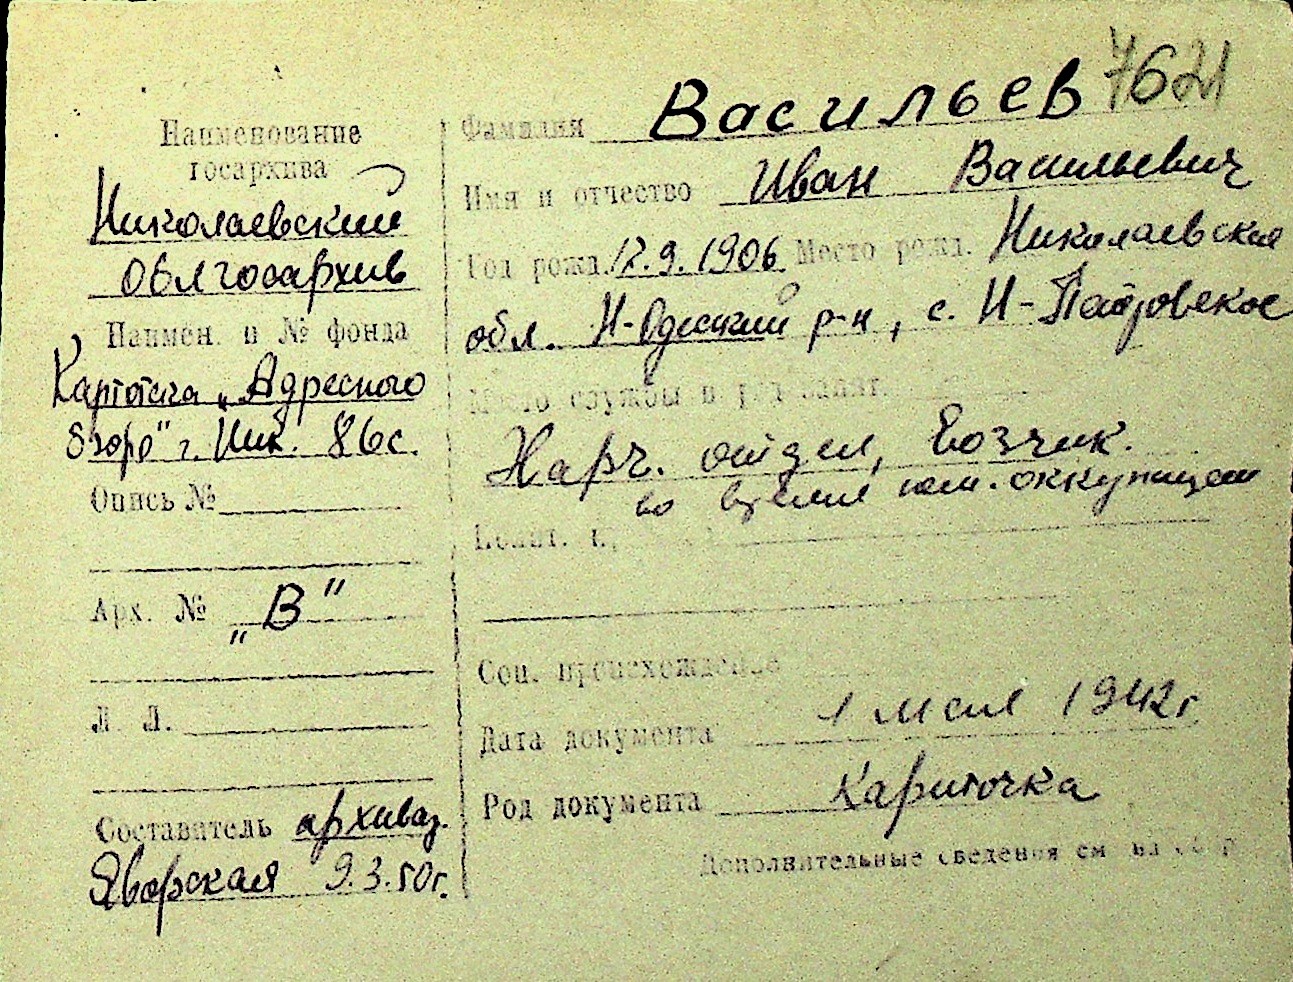 7621
Наименование
госархива
Николаевский
Облгосархив
Наимен. и № фонда
Картотека „Адресного
бюро" г. Ник. 86с.
Опись №
Арх. № „В"
Л. Л.
Составитель архиваз.
Яворская 9.3.50г.
Фамилия Васильев
Имя и отчество Иван Васильевич
Год рожд. 12.9.1906 Место рожд. Николаевская
обл. Н-Одесский р-н, с. Н-Петровское
Место службы и род занят.
Харч. отдел, Возчик.
во время нем. оккупации
Соц. происхождение
Дата документа 1 мая 1942г.
Род документа Карточка
Дополнительные сведения см. на об.